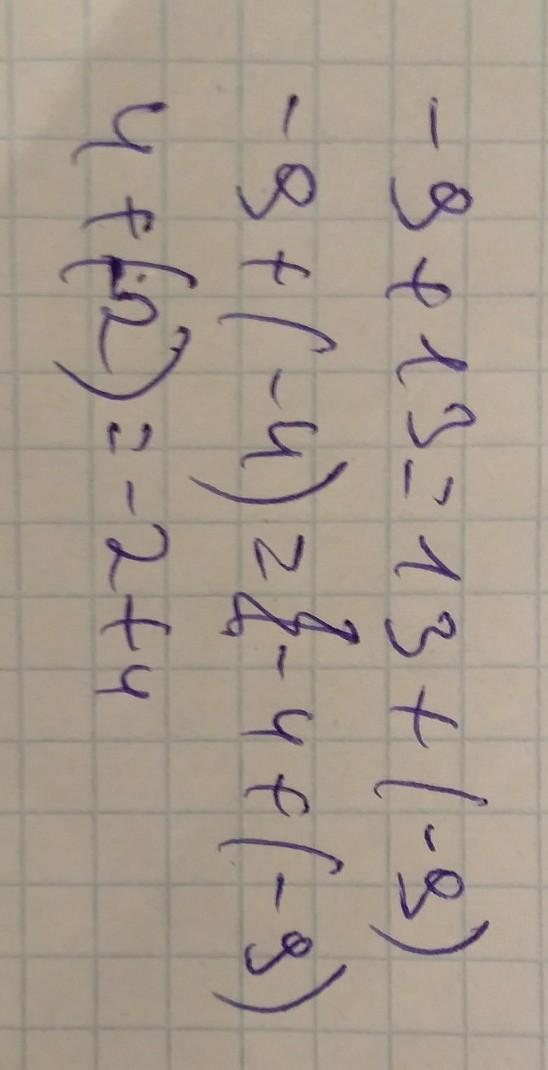 -9+13=13+(-9)
-9+(-4)=-4+(-9)
4+(-2)=-2+4